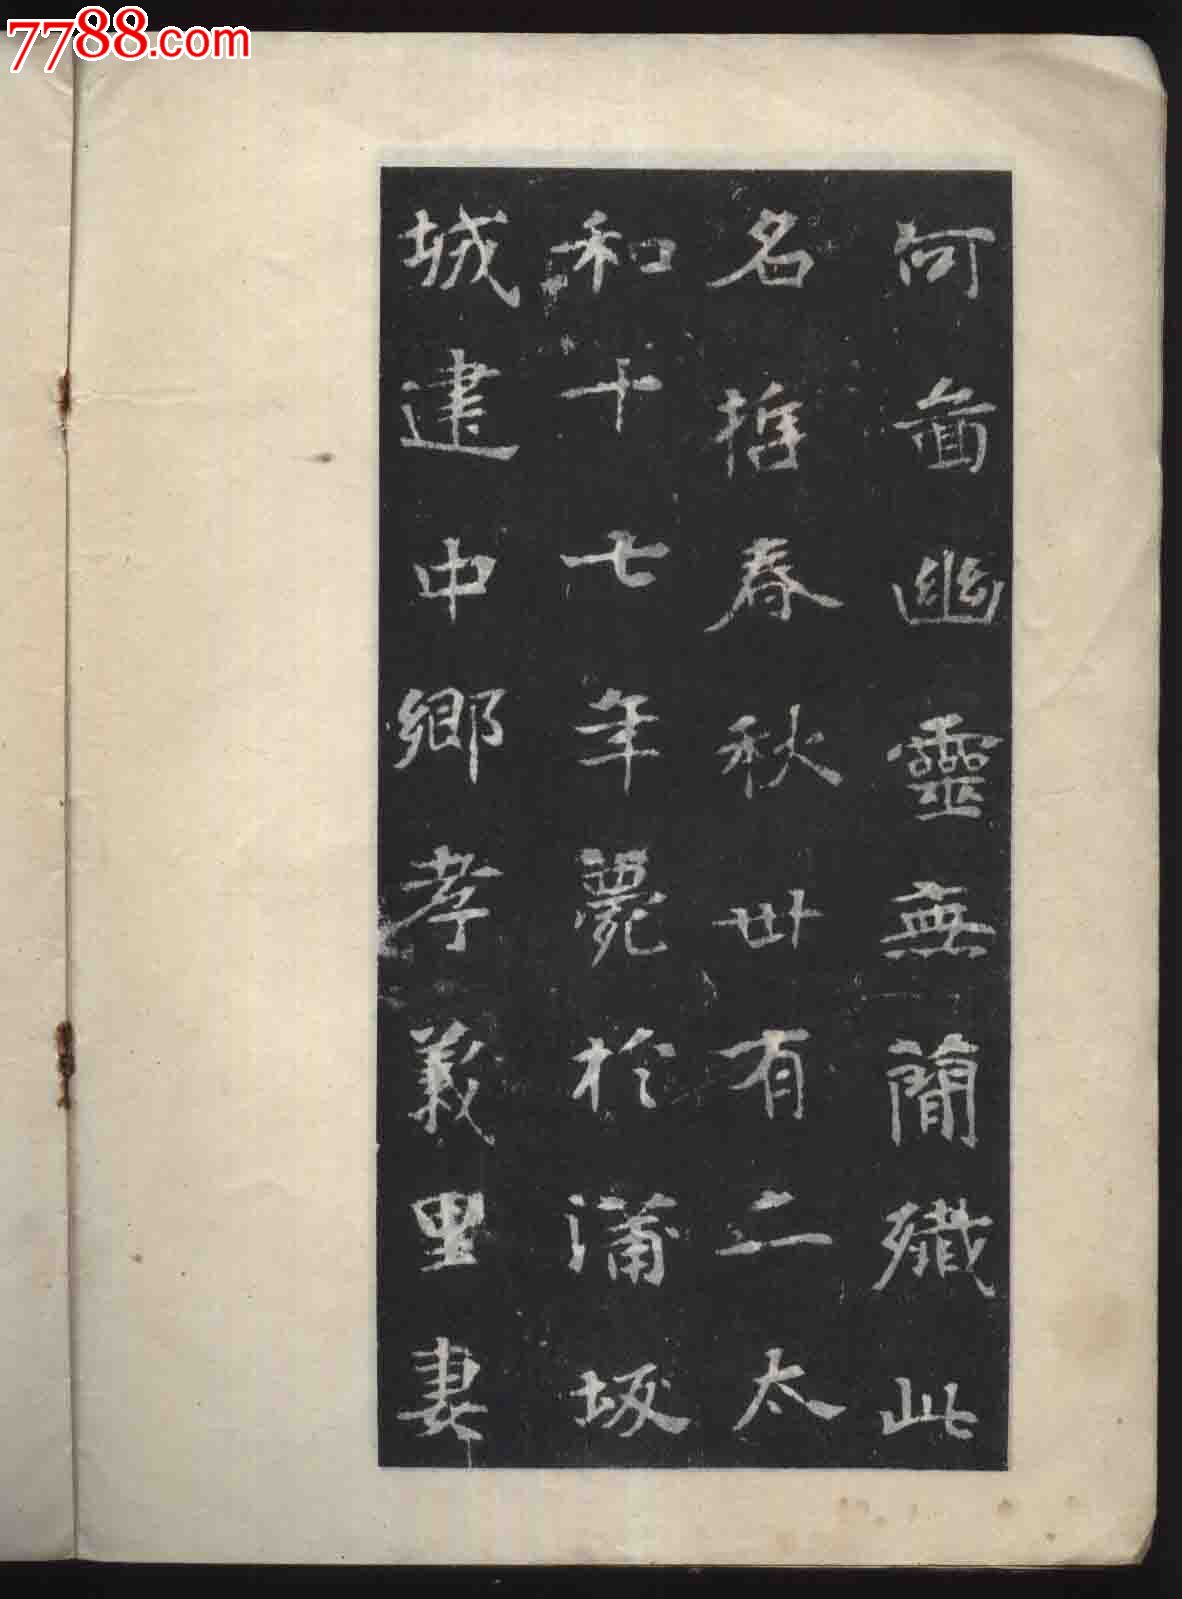 7788.com
何啚幽靈無簡殲此
名哲春秋卅有二太
和十七年薨於蒲坂
城建中鄉孝義里妻